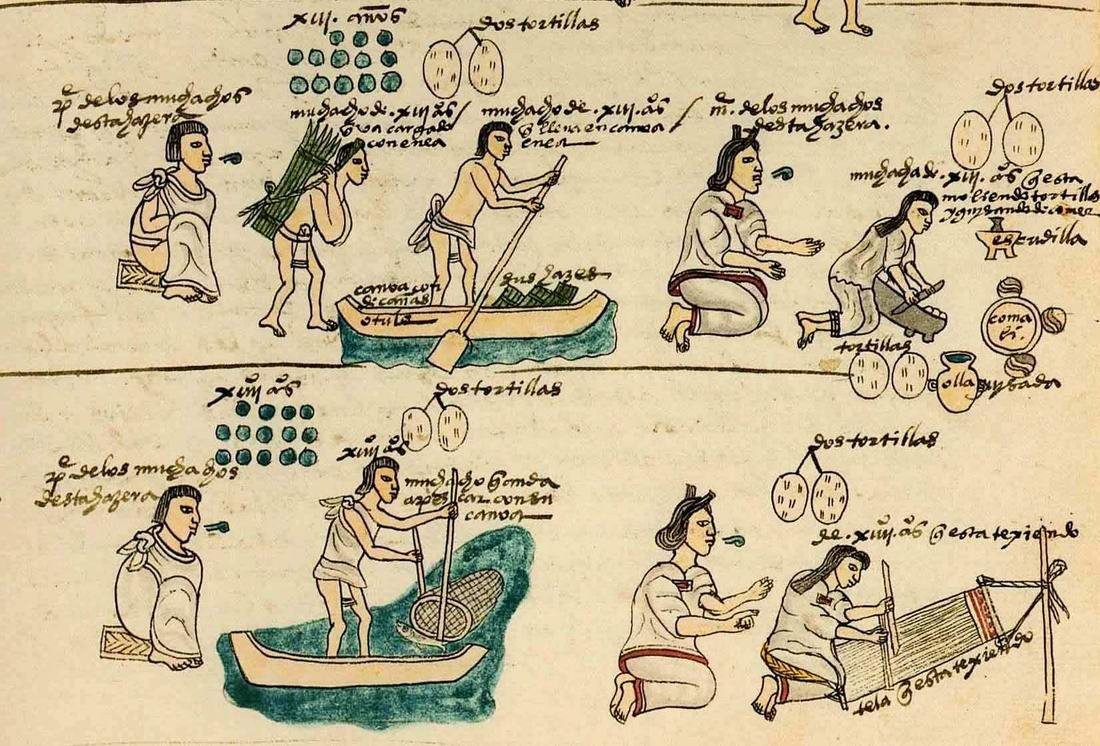 xiii. años
dos tortillas
pe de los muchachos
desta hazera
muchacho de .xiii aos
q va cargado
con enea
muchacho de .xiii. aos
q lleva en canoa
enea
me. de los muchachos
desta hazera.
dos tortillas
muchacha de .xiii. aos q esta
moliendo tortillas
y guisando de comer
escudilla
canoa con
de cañas
sus hazes
comali.
tortillas
olla guisada
xiiii aos
dos tortillas
pe de los muchachos
desta hazera
xiiii aos
muchacho q anda
a pescar con su
canoa
dos tortillas
de .xiiii. aos q esta texiendo
tela q esta texiendo